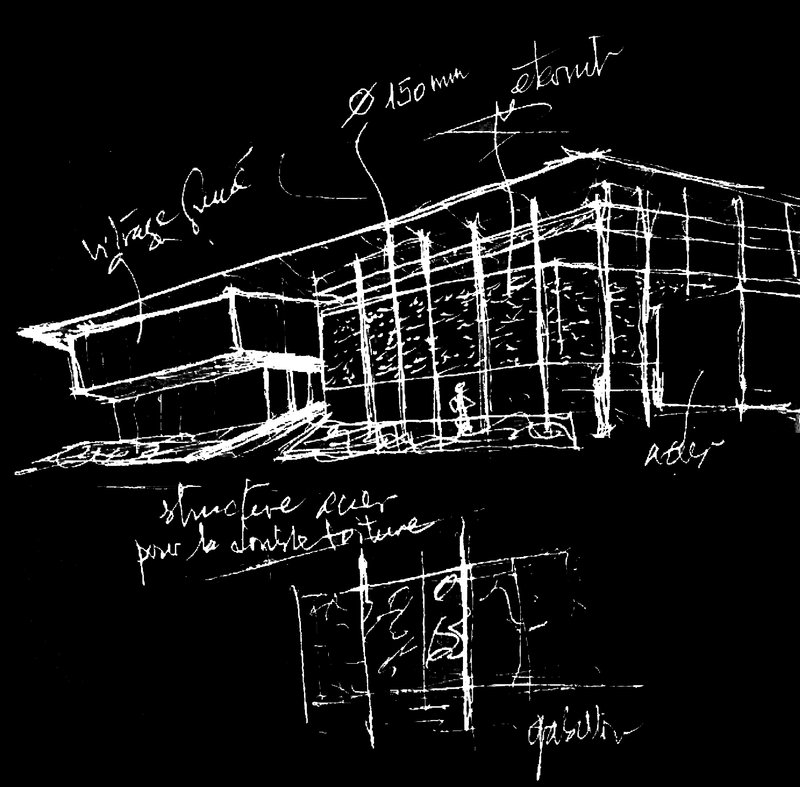 Ø 150 mm
eternit
vitrage fumé
acier
structure acier
pour la double toiture
gabion